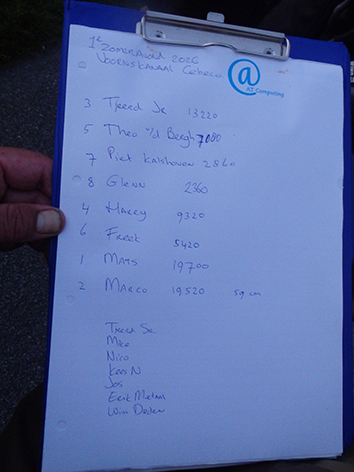 1e Zomeravond 2026
Voornskanaal Gebeco
@
AT Computing
3 Tjeerd Jr 13220
5 Theo v/d Bergh 7080
7 Piet Kalshoven 2860
8 Glenn 2360
4 Harry 9320
6 Freek 5420
1 Mats 19700
2 Marco 19520 59 cm
Tjeerd Sr
Mike
Nico
Kees N
Jos
Eerk
Wim